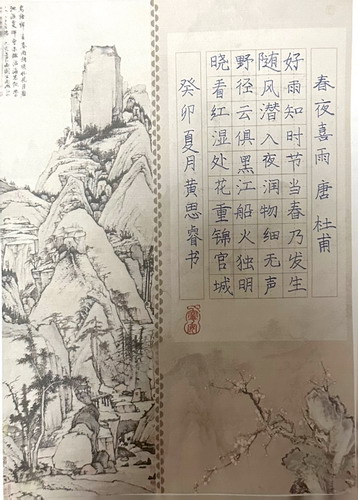 春夜喜雨 唐 杜甫
好雨知时节当春乃发生
随风潜入夜润物细无声
野径云俱黑江船火独明
晓看红湿处花重锦官城
癸卯夏月黄思睿书